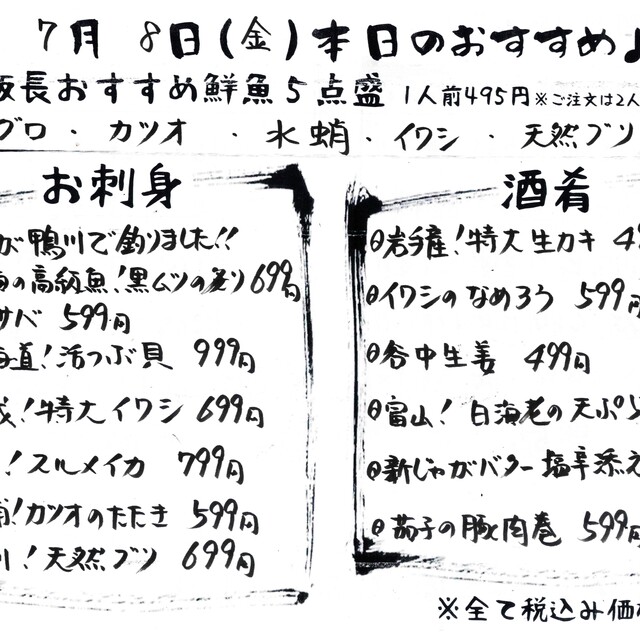 7月 8日(金)本日のおすすめ♪
板長おすすめ鮮魚5点盛 1人前495円 ※ご注文は2人
グロ・カツオ・水蛸・イワシ・天然ブリ
お刺身
が鴨川で釣りました!!
の高級魚!黒ムツの炙り 699円
サバ 599円
道!活つぶ貝 999円
!特大イワシ 699円
!スルメイカ 799円
!カツオのたたき 599円
!天然ブリ 699円
酒肴
岩手産!特大生カキ 4
イワシのなめろう 599円
谷中生姜 499円
富山!白海老の天ぷら
新じゃがバター塩辛添え
茄子の豚肉巻 599円
※全て税込み価格